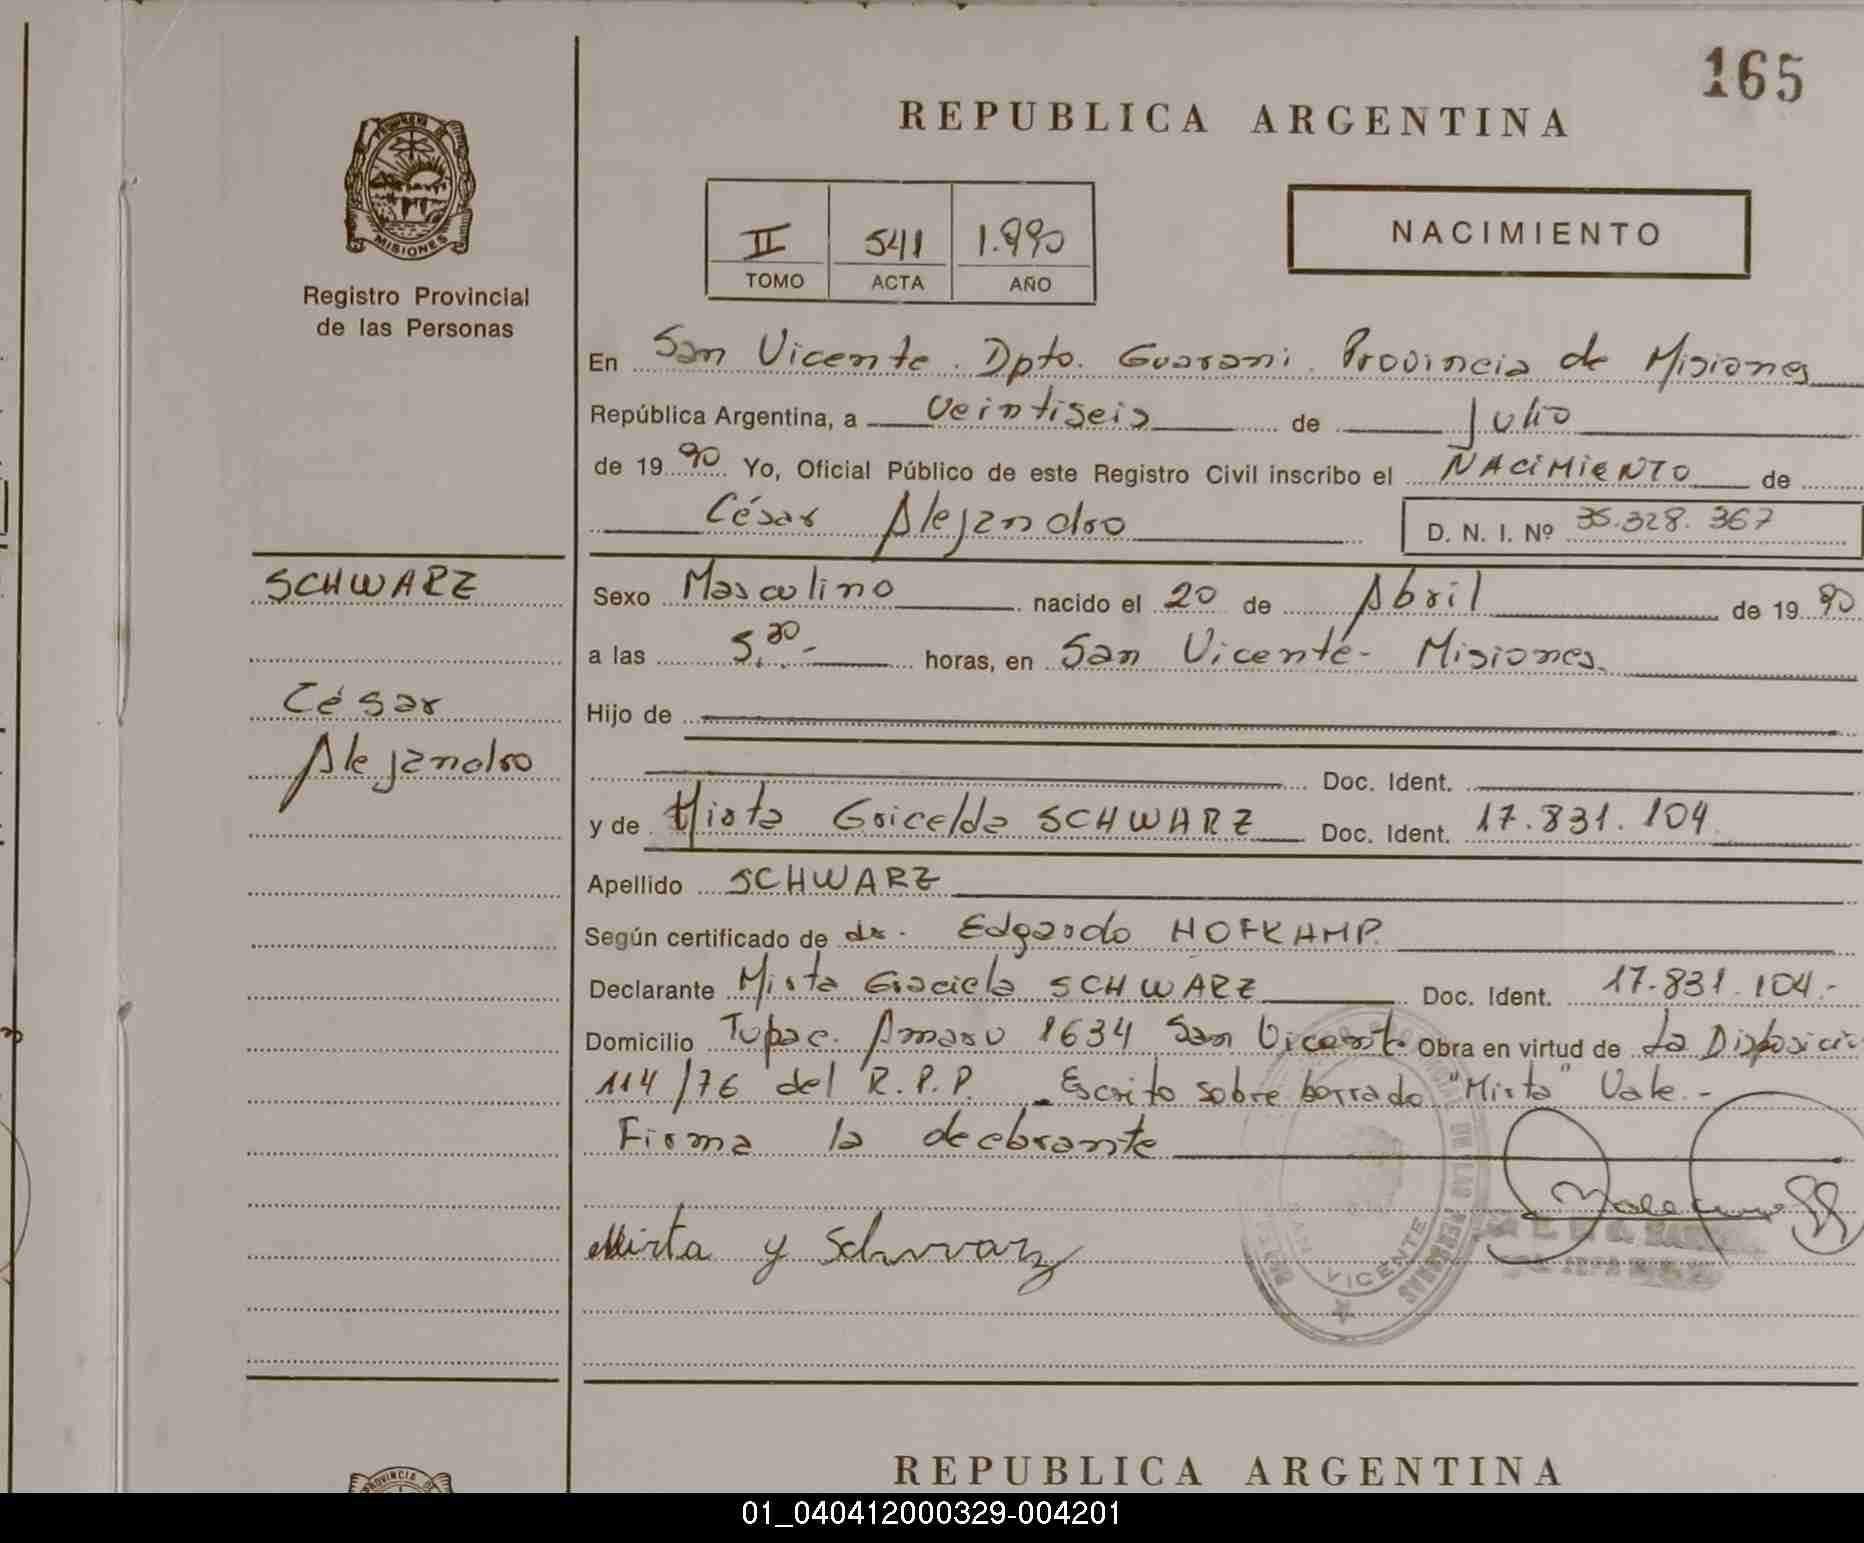 165
REPUBLICA ARGENTINA
PROVINCIA DE
MISIONES
Registro Provincial
de las Personas
II 541 1.990
TOMO ACTA AÑO
NACIMIENTO
En San Vicente. Dpto. Guarani. Provincia de Misiones
República Argentina, a Veintiseis de Julio
de 1990 Yo, Oficial Público de este Registro Civil inscribo el NACIMIENTO de
César Alejandro
D. N. I. Nº 35.328.367
SCHWARZ
César
Alejandro
Sexo Masculino nacido el 20 de Abril de 1990
a las 5,30.- horas, en San Vicente- Misiones.
Hijo de
Doc. Ident.
y de Mirta Gricelda SCHWARZ Doc. Ident. 17.831.104
Apellido SCHWARZ
Según certificado de dr. Edgardo HOFKAMP.
Declarante Mirta Graciela SCHWARZ Doc. Ident. 17.831.104.-
Domicilio Tupac. Amaru 1634 San Vicente Obra en virtud de La Disposició
114/76 del R.P.P. Escrito sobre borrado "Mirta" Vale.-
Firma la declarante
Mirta y Schwarz
SAN VICENTE
DE LAS PERSONAS
REPUBLICA ARGENTINA
PROVINCIA
01_040412000329-004201